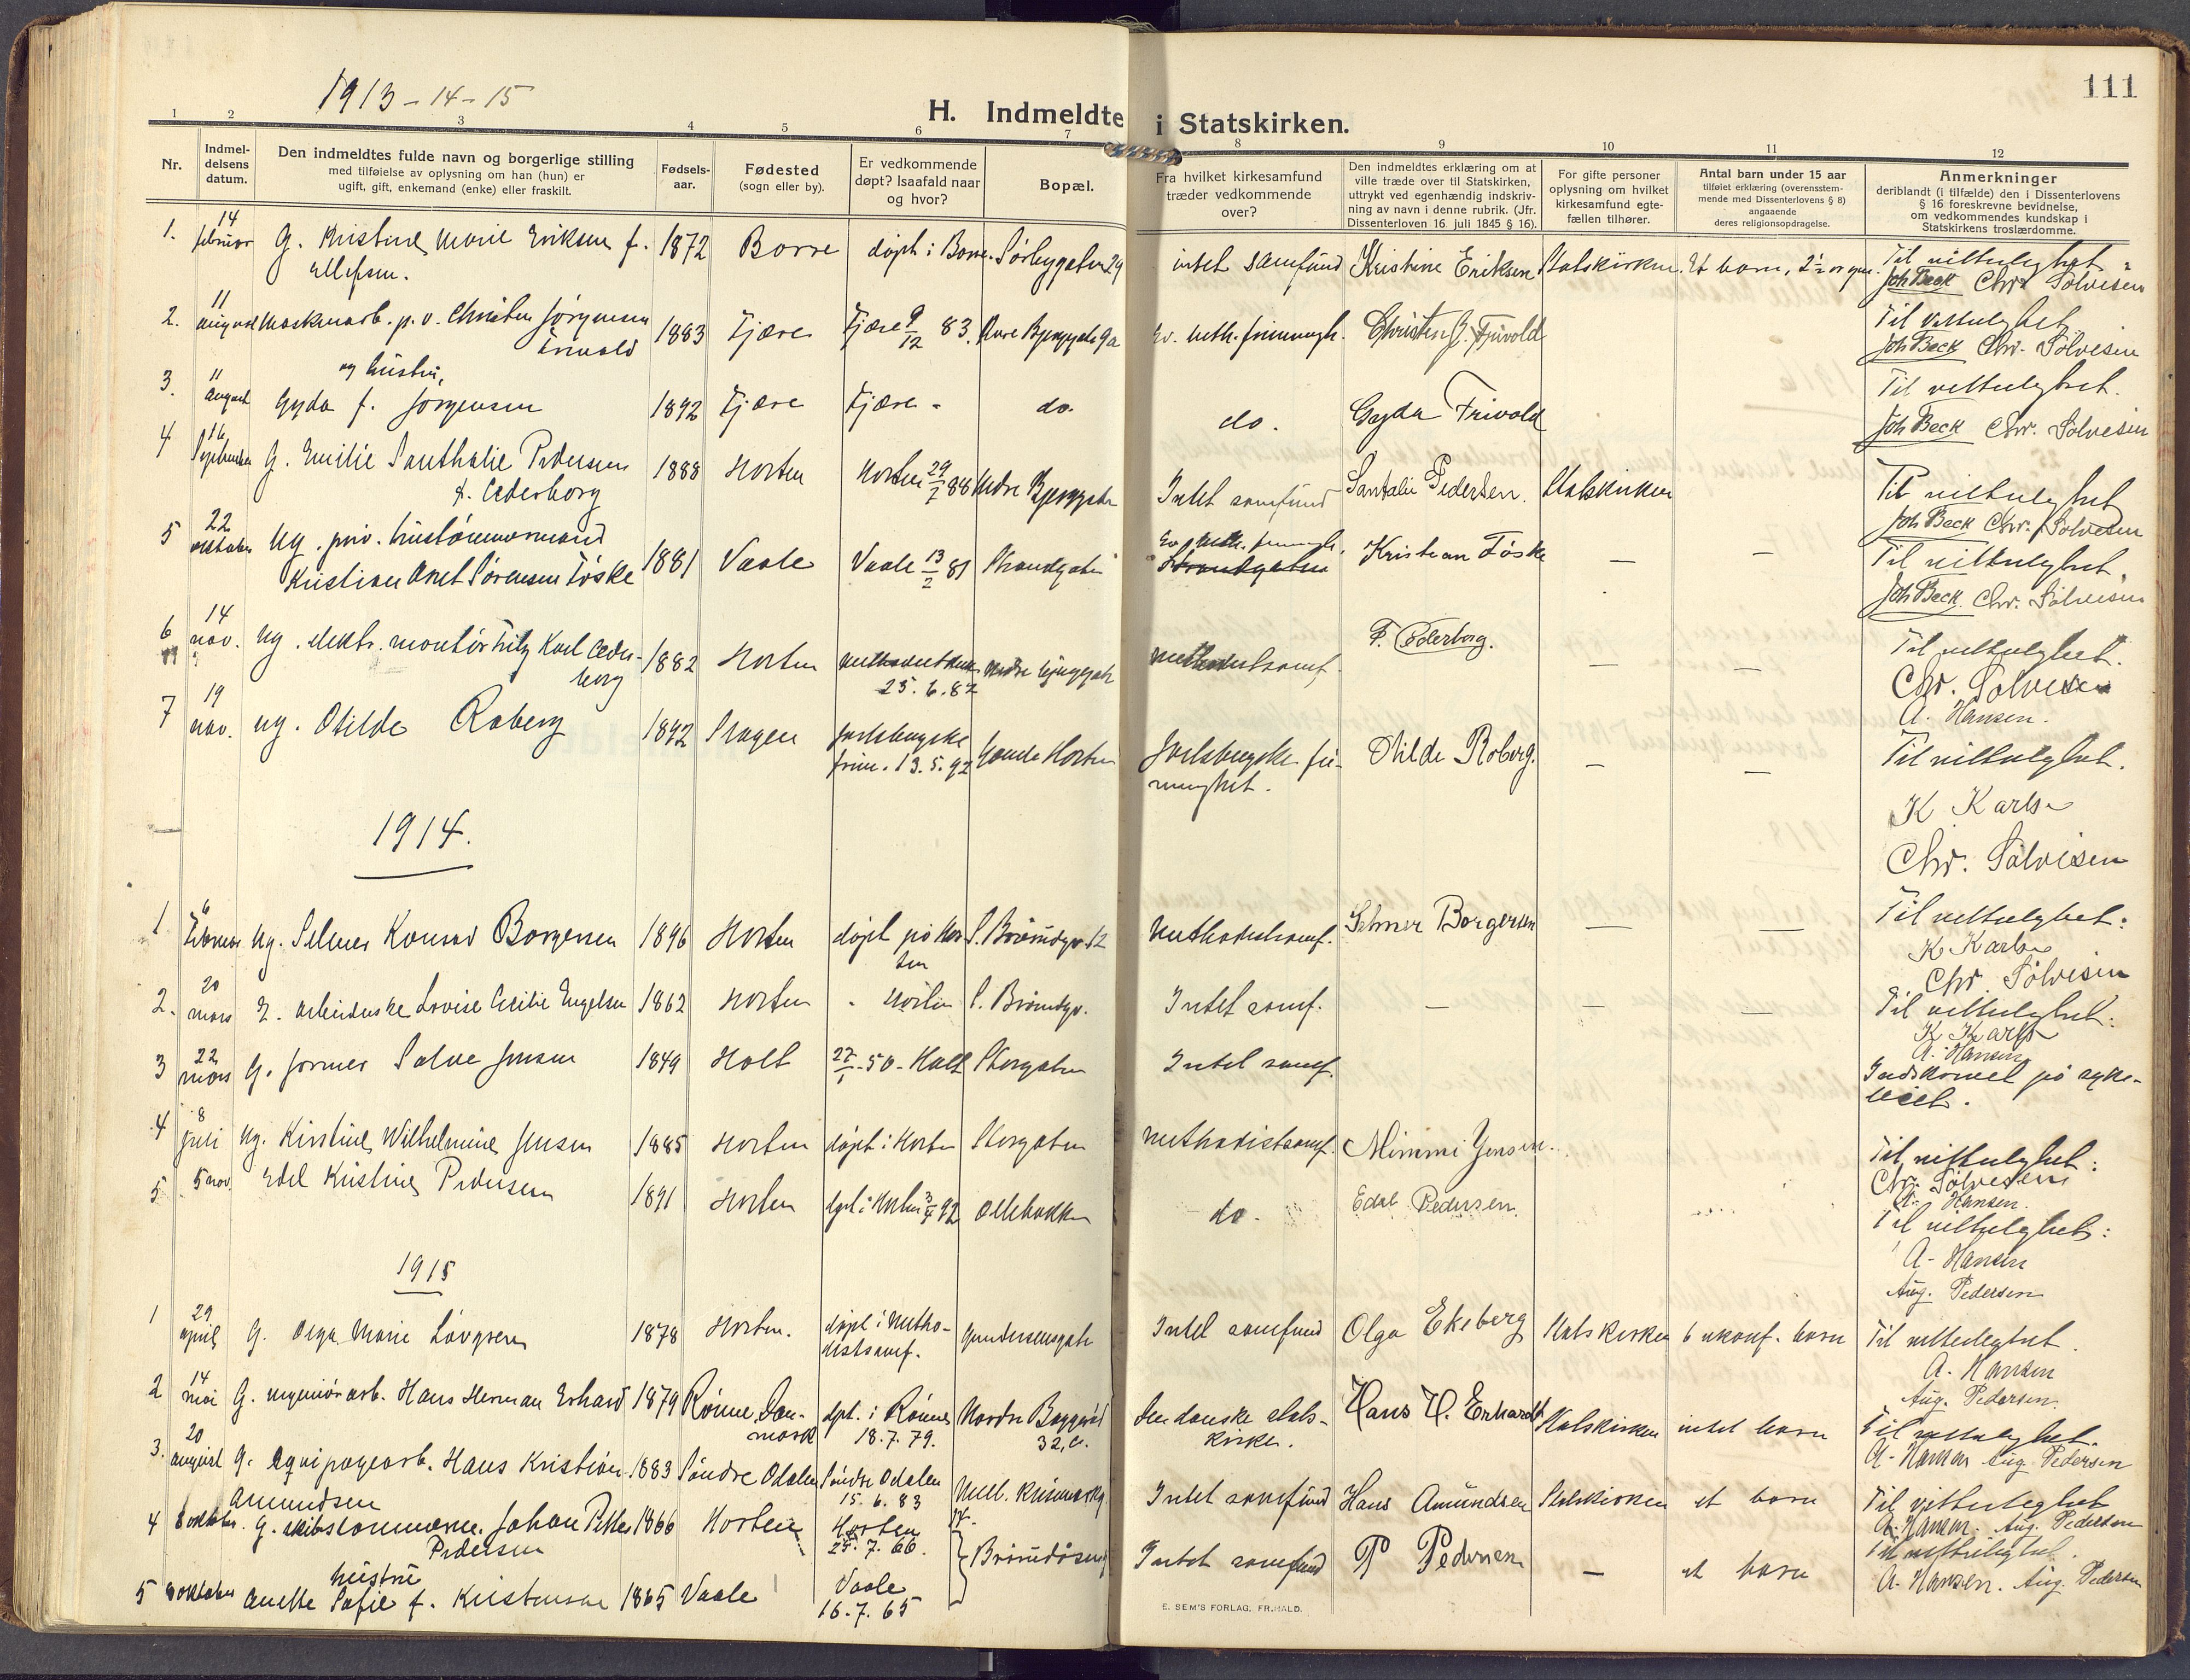 1913-14-15
H. Indmeldte i Statskirken.
111
1 2 3 4 5 6 7 8 9 10 11 12
Nr.
Indmel-
delsens
datum.
Den indmeldtes fulde navn og borgerlige stilling
med tilføielse av oplysning om han (hun) er
ugift, gift, enkemand (enke) eller fraskilt.
Fødsels-
aar.
Fødested
(sogn eller by).
Er vedkommende
døpt? Isaafald naar
og hvor?
Bopæl.
Fra hvilket kirkesamfund
træder vedkommende
over?
Den indmeldtes erklæring om at
ville træde over til Statskirken,
uttrykt ved egenhændig indskriv-
ning av navn i denne rubrik. (Jfr.
Dissenterloven 16. juli 1845 § 16).
For gifte personer
oplysning om hvilket
kirkesamfund egte-
fællen tilhører.
Antal barn under 15 aar
tilføiet erklæring (overensstem-
mende med Dissenterlovens § 8)
angaaende
deres religionsopdragelse.
Anmerkninger
deriblandt (i tilfælde) den i Dissenterlovens
§ 16 foreskrevne bevidnelse,
om vedkommendes kundskap i
Statskirkens troslærdomme.
1. 14 februar G. Kristine Marie Eriksen f. Ellefsen. 1872 Borre døpt i Borre. 29 intet samfund Kristine Eriksen Statskirken. Et barn, Til vitterlighet: Joh Beck Chr. Sølvesen
2. 11 august Maskinarb. p. v. Christen Jørgensen 1883 Fjære Fjære 9/12 83. 9a Ev. luth. frimenigh. Til vitterlighet. Joh Beck Chr. Sølvesen
3. 11 august og hustru, Gyda f. Jørgensen 1892 Fjære Fjære - do. do. Gyda Frivold Til vitterlighet. Joh Beck Chr. Sølvesen
4 16 September G. Emilie Santhalie Pedersen f. Cederborg 1888 Horten Horten 88 Nedre Intet samfund Santalie Pedersen. Statskirken Til vitterlighet Joh Beck Chr. Sølvesen
5 22 oktober Ug. priv. hustømmermand Kristian Anet Sørensen Føske 1881 Vaale Vaale 13/2 81 Strandgaten Ev. luth. frimenigh. Strandgaten Kristian Føske — — Til vitterlighet, Joh Beck. Chr. Sølvesen
6 14 nov. Ug. elektr. montør Fritz Karl Ceder-
borg 1882 Horten 25.6.82 Nedre F. Cederborg. — — Til vitterlighet. Chr. Sølvesen A. Hansen.
7 19 nov. ug. Otilde Roberg 1892 Skagen Jarlsbergske frim. 13.5.92 Horten Jarlsbergske fri-
menighet. Otilde Roberg. — — Til vitterlighet. K Karlsen Chr. Sølvesen
1914.
1 6 Februar Ug. Selmer Konrad Borgersen 1896 Horten døpt på Hor-
ten 12 Methodistsamf. Selmer Borgersen — — Til vitterlighet: K Karlsen Chr Sølvesen
2. 20 mars E. arbeiderske Lovise Cecilie Engelsen 1862 Horten - Horten Intet samf. — — — Til vitterlighet: K Karlsen A. Hansen
3 22 mars G. former Salve Jensen 1849 Holt 27/1-50-Holt Storgaten Intet samf. Indskrevet på syke-
leiet.
4 8 juli Ug. Kirstine Wilhelmine Jensen 1885 Horten døpt i Horten Storgaten Methodistsamf. Mimmi Jensen. Til vitterlighet: Chr. Sølvesen A. Hansen.
5 5 nov. Edel Kristine Pedersen 1891 Horten døpt i Horten 3/4 92 Ollebakken do. Edel Pedersen. Til vitterlighet: A. Hansen Aug. Pedersen
1915
1 29 april G. Olga Marie Løvgren 1878 Horten. døpt i Metho-
distsamf. Gundersensgate Intet samfund Olga Ekeberg Statskirken 6 ukonf. barn Til vitterlighet. A. Hansen Aug. Pedersen.
2 14 mai G. Hans Herman Erhard 1879 Rønne Dan-
mark dpt. i Rønne 18.7.79. Nordre 32, Den danske stats-
kirke. Hans H. Erhardt Statskirken intet barn Til vitterlighet. A. Hansen Aug Pedersen
3. 20 august G. Equipagearb. Hans Kristian Amundsen 1883 Søndre Odalen Søndre Odalen 15.6.83 Intet samfund Hans Amundsen Statskirken et barn Til vitterleghet A. Hansen. Aug. Pedersen
4 8 oktober. G. skibstømmerm. Johan Petter Pedersen 1866 Horten Horten 7.66. Intet samfund P Pedersen — et barn Til vitterlighet. A. Hansen. Aug. Pedersen
5 8 oktober hustru Anette Sofie f. Kristensen 1865 Vaale Vaale 16.7.65
E. SEM'S FORLAG, FR.HALD.